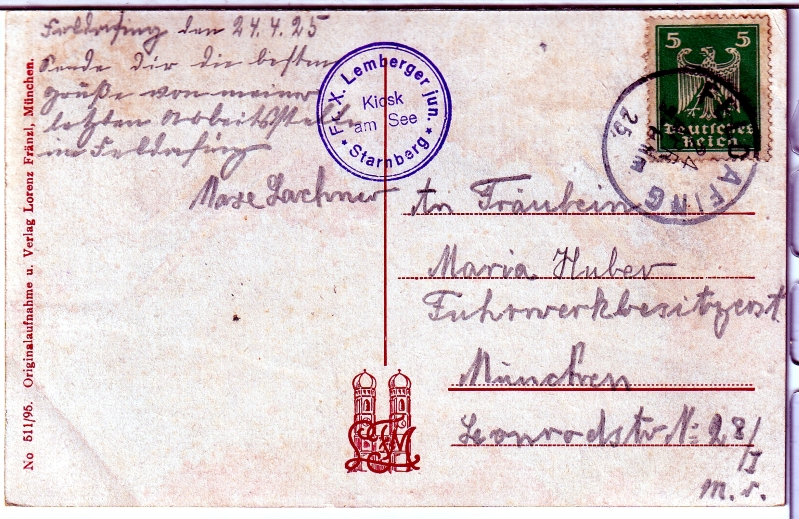 Feldafing den 24.4.25
Sende dir die besten
Grüße von meiner
letzten Arbeitsstelle
in Feldafing
Max Lachner
Fr. X. Lemberger jun.
Kiosk
am See
* Starnberg *
5 5
Deutsches
Reich
FELDAFING
25.
An Fräulein
Maria Huber
Fuhrwerkbesitzerst.
München
Leonrodstr N: 28/
/I
M. r.
No 511/95. Originalaufnahme u. Verlag Lorenz Fränzl, München.